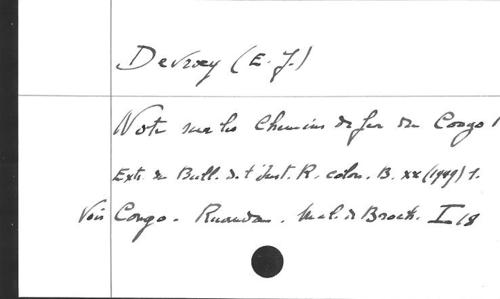 Devroey (E. J.)
Note sur les Chemins de fer du Congo
Extr. du Bull. de l'Inst. R. colon. B. xx (1949) 1.
Voir Congo. Ruanda. Mel. de Broch. I 18